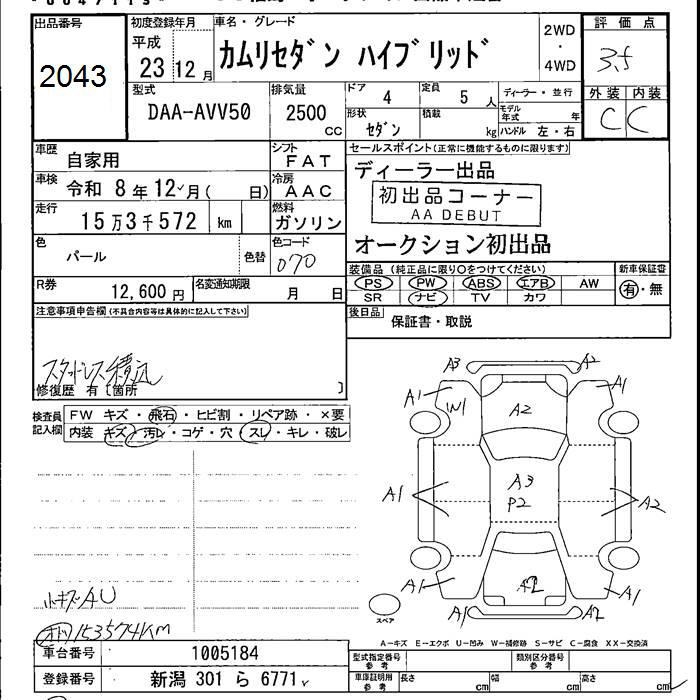 出品番号
2043
初度登録年月
平成
23 12 月
車名・グレード
カムリセダン ハイブリッド
2WD
・
4WD
評価点
3.5
外装 内装
C C
型式
DAA-AVV50
排気量
2500
CC
ドア 4
定員 5 人
形状
セダン
積載
kg
ディーラー・並行
モデル
年式 年
ハンドル 左・右
車歴
自家用
シフト
FAT
車検
令和 8年 12月( 日)
冷房
AAC
走行
15万3千572 km
燃料
ガソリン
色
パール
色替
色コード
070
R券
12,600 円
名変通知期限
月 日
セールスポイント(正常に機能するものに限ります)
ディーラー出品
初出品コーナー
AA DEBUT
オークション初出品
装備品(純正品に限り〇をつけてください)
新車保証書
PS PW ABS エアB AW
SR ナビ TV カワ
有・無
後日品
保証書・取説
注意事項申告欄(不具合内容等は具体的に記入して下さい)
スタットレス積込
修復歴 有〔箇所 〕
検査員
記入欄
FW キズ・飛石・ヒビ割・リペア跡・×要
内装 キズ・汚レ・コゲ・穴・スレ・キレ・破レ
A3 A2
A1 A1
W1
A2
A3
P2
A1 A2
A1 A2 A1
A1 A2
スペア
小キズAU
オド 153574KM
A-キズ E-エクボ U-凹み W-補修跡 S-サビ C-腐食 XX-交換済
車台番号
1005184
型式指定番号
参考
類別区分番号
参考
登録番号
新潟 301 ら 6771
車庫証明用
参考
長さ cm
幅 cm
高さ cm